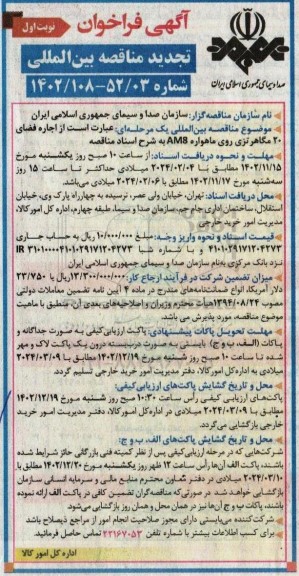 آگهی فراخوان
نوبت اول
تجدید مناقصه بین‌المللی
شماره ۵۲/۰۳-۱۴۰۲/۱۰۸
صدا و سیمای جمهوری اسلامی ایران
نام سازمان مناقصه‌گزار: سازمان صدا و سیمای جمهوری اسلامی ایران
موضوع مناقصه بین‌المللی یک مرحله‌ای: عبارت است از اجاره فضای
۲۰ مگاهرتزی روی ماهواره AM8 به شرح اسناد مناقصه
مهلت و نحوه دریافت اسناد: از ساعت ۱۰ صبح روز یکشنبه مورخ
۱۴۰۲/۱۱/۱۵ مطابق با ۲۰۲۴/۰۲/۰۴ میلادی حداکثر تا ساعت ۱۵ روز
سه‌شنبه مورخ ۱۴۰۲/۱۱/۱۷ مطابق با ۲۰۲۴/۰۲/۰۶ میلادی می‌باشد.
محل دریافت اسناد: تهران، خیابان ولی عصر، نرسیده به چهارراه پارک وی، خیابان
استقلال، ساختمان اداری جام جم، سازمان صدا و سیما، طبقه چهارم، اداره کل امور کالا،
مدیریت امور خرید خارجی
قیمت اسناد و نحوه واریز وجه: مبلغ ۱۰/۰۰۰/۰۰۰ ریال به حساب جاری
۴۱۰۱۰۲۹۱۷۱۲۰۴۲۷۳ و با شماره شبا IR ۳۱۰۱۰۰۰۰۴۱۰۱۰۲۹۱۷۱۲۰۴۲۷۳
نزد بانک مرکزی به‌نام سازمان صدا و سیمای جمهوری اسلامی ایران
میزان تضمین شرکت در فرآیند ارجاع کار: ۱۳/۳۰۰/۰۰۰/۰۰۰ ریال یا ۲۳/۷۵۰
دلار آمریکا، انواع ضمانتنامه‌های مندرج در ماده ۴ آیین نامه تضمین معاملات دولتی
مصوب ۱۳۹۴/۰۸/۲۴ هیأت محترم وزیران و اصلاحیه‌های بعدی آن، منطبق با ماهیت
موضوع مناقصه، مورد پذیرش می باشد.
مهلت تحویل پاکات پیشنهادی: پاکت ارزیابی‌کیفی به صورت جداگانه و
پاکات (الف، ب وج) بایستی به صورت دربسته درون یک پاکت لاک و مهر
شده تا ساعت ۱۰ صبح روز شنبه مورخ ۱۴۰۲/۱۲/۱۹ مطابق با ۲۰۲۴/۰۳/۰۹
میلادی به اداره‌کل امور کالا، دفتر مدیریت امور خرید خارجی تسلیم گردد.
محل و تاریخ گشایش پاکت‌های ارزیابی‌کیفی:
پاکت‌های ارزیابی کیفی رأس ساعت ۱۰:۳۰ صبح روز شنبه مورخ ۱۴۰۲/۱۲/۱۹
مطابق با ۲۰۲۴/۰۳/۰۹ میلادی در اداره‌کل امور کالا، دفتر مدیریت امور خرید
خارجی بازگشایی می‌گردد.
محل و تاریخ گشایش پاکت‌های الف، ب و ج:
شرکت‌هایی که در مرحله ارزیابی کیفی پس از نظر کمیته فنی بازرگانی حائز شرایط شده
باشند، پاکت الف آن‌ها رأس ساعت ۱۲ ظهر روز یکشنبه مورخ ۱۴۰۲/۱۲/۲۰ مطابق با
۲۰۲۴/۰۳/۱۰ میلادی در دفتر معاون محترم منابع مالی و سرمایه انسانی سازمان
بازگشایی خواهد شد. در صورتی که مناقصه‌گران تضمین کافی در پاکت الف ارائه نموده
باشند، پاکات ب و ج آن‌ها نیز در همان محل و همان روز بازگشایی می‌شود
شرکت‌کننده می‌بایستی دارای مجوز صلاحیت انجام امور از مراجع ذیصلاح باشد
برای کسب اطلاعات بیشتر با شماره تلفن ۲۲۱۶۷۰۵۳ تماس حاصل فرمائید.
اداره کل امور کالا